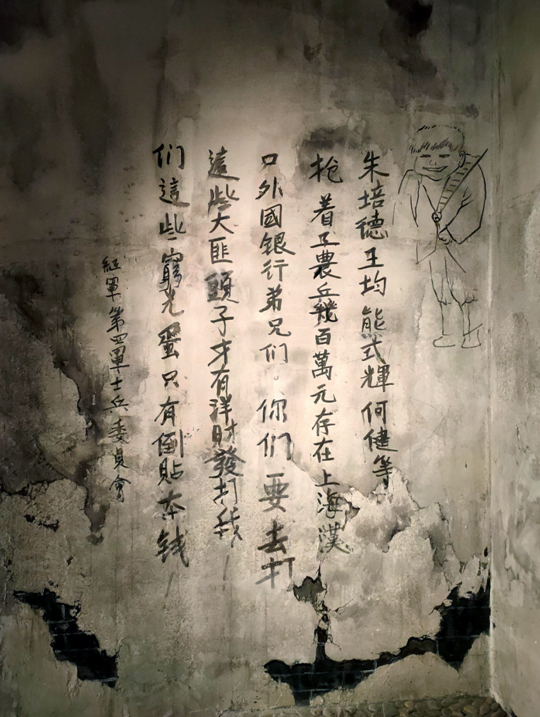 朱培德王均熊式輝何健等
抢着工農兵幾百萬元存在上海漢
口外國銀行弟兄们。你们要去打
這些大匪頭子才有洋財發打我
们這些窮光蛋只有倒貼本钱！
紅軍第四軍士兵委員會